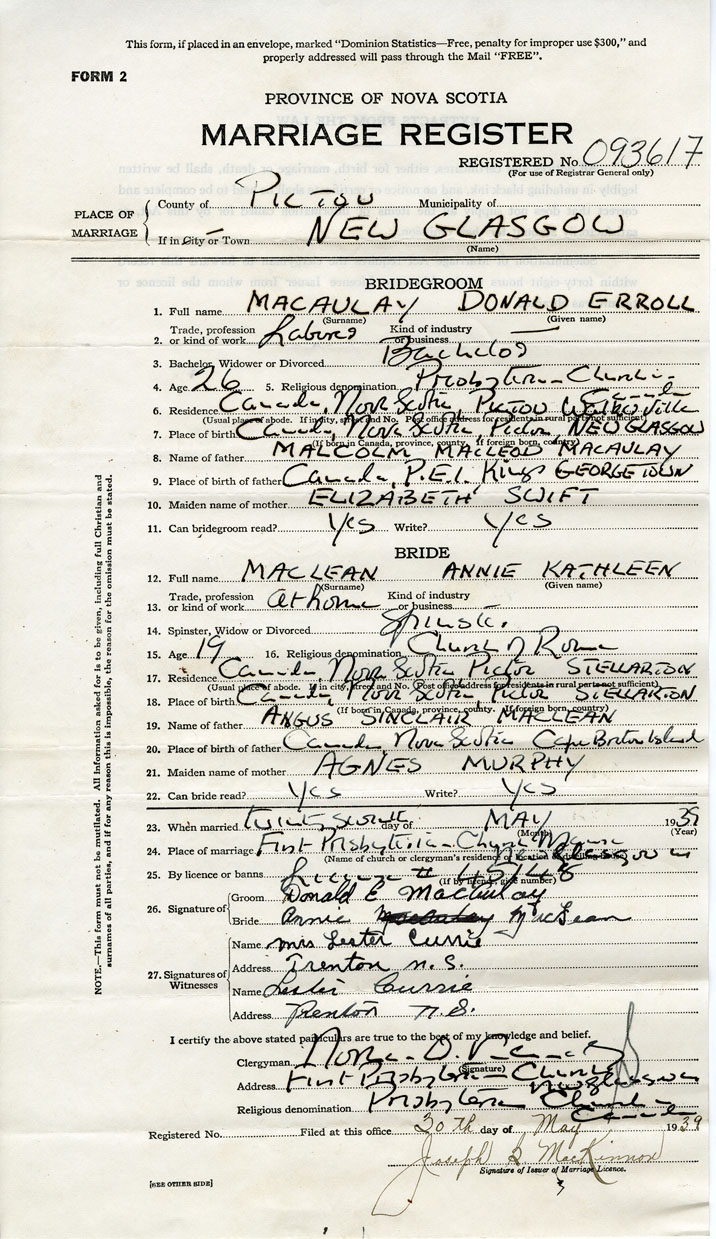 This form, if placed in an envelope, marked "Dominion Statistics—Free, penalty for improper use $300," and
properly addressed will pass through the Mail "FREE".
FORM 2
PROVINCE OF NOVA SCOTIA
MARRIAGE REGISTER
REGISTERED No. 093617
(For use of Registrar General only)
PLACE OF MARRIAGE
County of PICTOU Municipality of
If in City or Town NEW GLASGOW
(Name)
BRIDEGROOM
1. Full name MACAULAY DONALD ERROLL
(Surname) (Given name)
2. Trade, profession or kind of work Laborer Kind of industry or business —
3. Bachelor, Widower or Divorced Bachelor
4. Age 26 5. Religious denomination Presbyterian Church in Canada
6. Residence Canada, Nova Scotia, PICTOU
(Usual place of abode. If in city, street and No. Post office address for residents in rural parts not sufficient)
7. Place of birth Canada, Nova Scotia Pictou, NEW GLASGOW
(If born in Canada, province, county. If foreign born, country)
8. Name of father MALCOLM MACLEOD MACAULAY
9. Place of birth of father Canada, P.E.I. Kings GEORGETOWN
10. Maiden name of mother ELIZABETH SWIFT
11. Can bridegroom read? Yes Write? Yes
BRIDE
12. Full name MACLEAN ANNIE KATHLEEN
(Surname) (Given name)
13. Trade, profession or kind of work at home Kind of industry or business
14. Spinster, Widow or Divorced Spinster
15. Age 19 16. Religious denomination Church of Rome
17. Residence Canada, Nova Scotia, Pictou STELLARTON
(Usual place of abode. If in city, street and No. Post office address for residents in rural parts not sufficient)
18. Place of birth Canada, Nova Scotia Pictou STELLARTON
(If born in Canada, province, county. If foreign born, country)
19. Name of father ANGUS SINCLAIR MACLEAN
20. Place of birth of father Canada, Nova Scotia Cape Breton Island
21. Maiden name of mother AGNES MURPHY
22. Can bride read? Yes Write? Yes
23. When married day of MAY 1939
(Month) (Year)
24. Place of marriage First Presbyterian Church Manse New Glasgow
(Name of church or clergyman's residence or location
25. By licence or banns License # 45748
(If by licence, give number)
26. Signature of
Groom Donald E MacAulay
Bride Annie McLean
27. Signatures of Witnesses
Name Mrs Lester Currie
Address Trenton N.S.
Name Leslie Currie
Address Trenton N.S.
I certify the above stated particulars are true to the best of my knowledge and belief.
Clergyman
(Signature)
Address First Presbyterian Church New Glasgow
Religious denomination Presbyterian Church in Canada
Registered No. Filed at this office 30th day of May 1939
Joseph MacKinnon
Signature of Issuer of Marriage Licence.
[SEE OTHER SIDE]
NOTE.—This form must not be mutilated. All information asked for is to be given, including full Christian and
surnames of all parties, and if for any reason this is impossible, the reason for the omission must be stated.